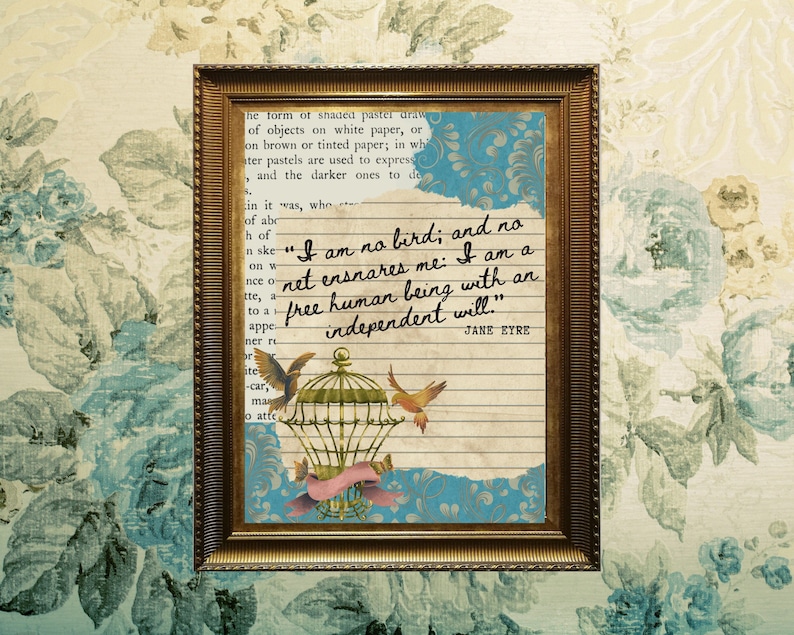 the form of shaded pastel draw
of objects on white paper, or
on brown or tinted paper; in whi
ter pastels are used to express
, and the darker ones to de
s.
kin it was, who
of abo
h of
n ske
on w
nce o
tte, a
to a
appe
ner re
-car,
mas
o atte
“I am no bird; and no
net ensnares me: I am a
free human being with an
independent will.”
JANE EYRE